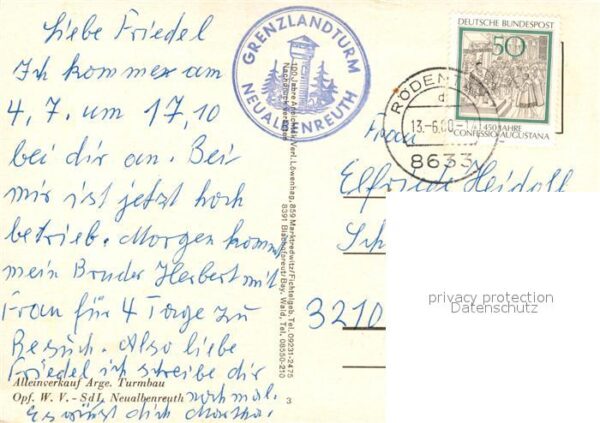 Liebe Friedel
Ich komme am
4.7. um 17,10
bei dir an. Bei
mir ist jetzt hoch
betrieb. Morgen kommt
mein Bruder Herbert mit
Frau für 4 Tage zu
Besuch. Also liebe
Friedel ich schreibe dir
noch mal.
Es grüßt dich Martha.
Alleinverkauf Arge. Turmbau
Opf. W. V. - SdL Neualbenreuth
3
GRENZLANDTURM
NEUALBENREUTH
100 Jahre Ansichtskarten Verl. Löwenhag, 859 Marktredwitz/Fichtelgeb. Tel. 09231-2475
8391 Bischofsreut/Bay. Wald, Tel. 08550-210
DEUTSCHE BUNDESPOST
50
450 JAHRE
CONFESSIO AUGUSTANA
RÖDENTAL
d
13.-6.80
8633
Frau
Elfriede Heidoll
Sch
3210
privacy protection
Datenschutz